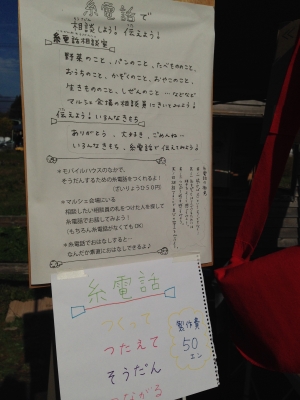 糸電話で
相談しよう！伝えよう！
糸電話相談室
野菜のこと、パンのこと、たべもののこと、
おうちのこと、かぞくのこと、おやこのこと、
生きもののこと、しぜんのこと…などなど
マルシェ会場の相談員にきいてみよう！
伝えよう！いまんきもち
ありがとう、大好き、ごめんね…
いまんきもち、糸電話で伝えてみよう！
＊モバイルハウスのなかで、
そうだんするための糸電話をつくれるよ！
（ざいりょうひ０円）
＊マルシェ会場にいる
相談したい相談員の札をつけた人を探して
糸電話でお話してみよう！
（もちろん糸電話がなくてもOK）
＊糸電話でおはなしすると…
なんだか素直におはなしできるよ♪
糸電話
つくって
つたえて
そうだん
つながる
製作費
50
エン